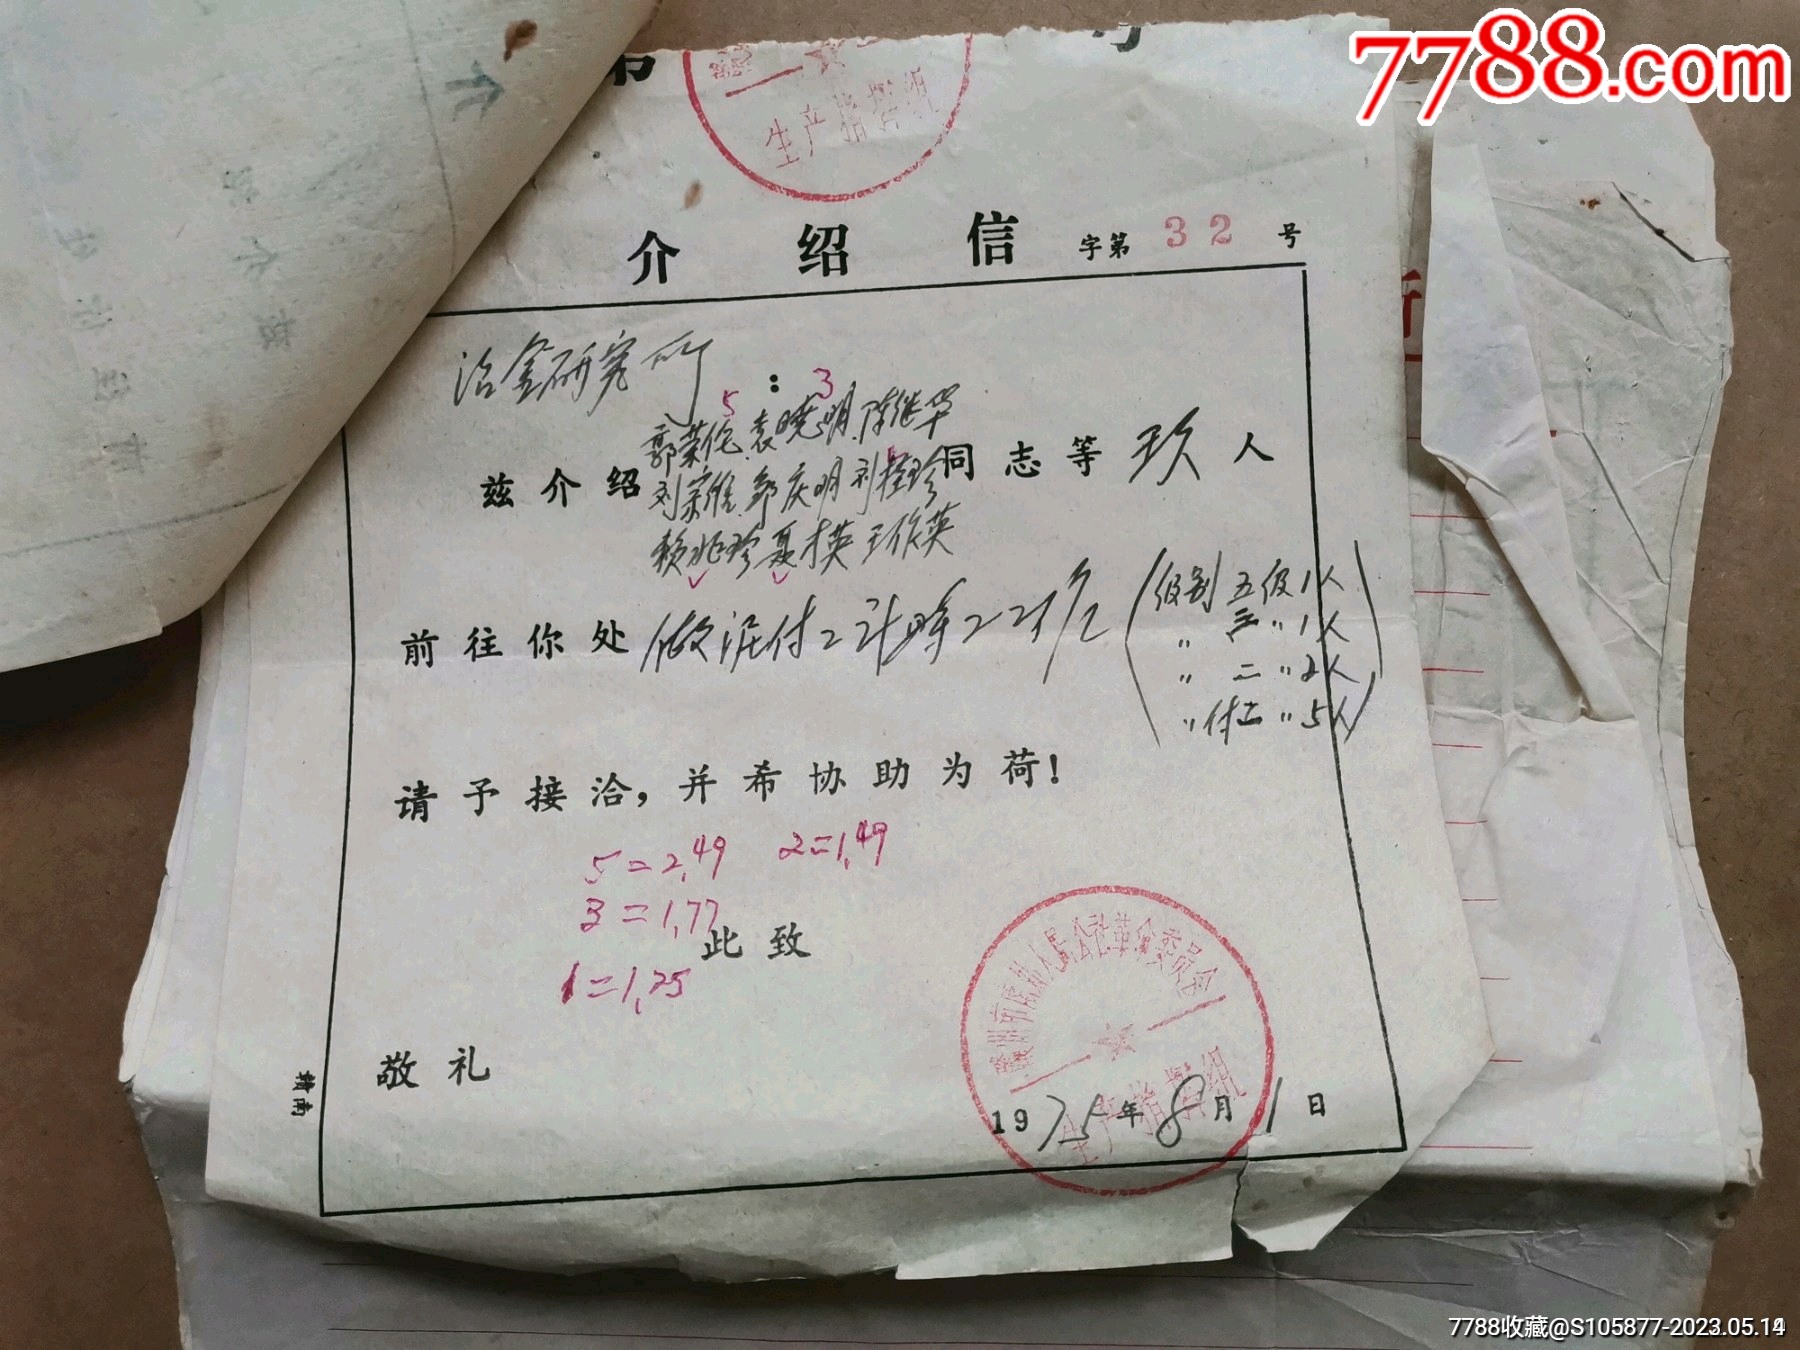 7788.com
生产指挥组
介绍信 字第 32 号
冶金研究所：
5 3
郭荣伦、袁晓明、陈继华
兹介绍 刘宗维、郭庆明、刘桂珍 同志等 玖 人
赖兆珍、聂才英、王作英
前往你处 做泥付工计时工工作 (级别 五级1人
〃 三〃1人
〃 二〃2人
〃付工〃5人)
请予接洽，并希协助为荷！
5=2.49 2=1.49
3=1.77
此致
1=1.25
敬礼
人民公社革命委员会
生产指挥组
1975年8月1日
赣南
7788收藏@S105877-2023.05.14